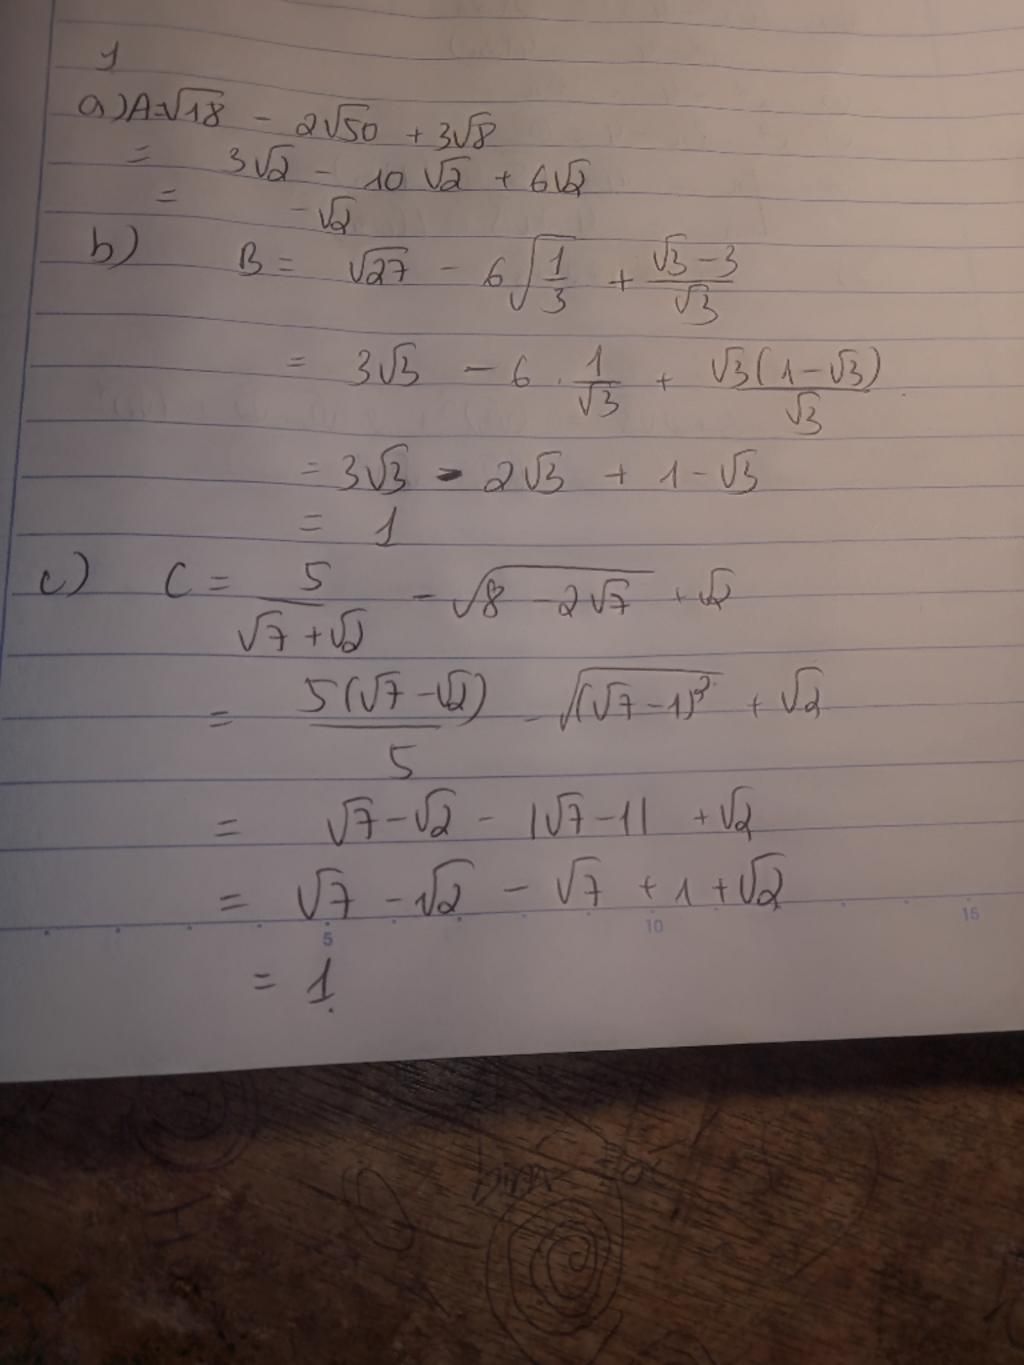 1
a) A=√18 - 2√50 + 3√8
= 3√2 - 10√2 + 6√2
= -√2
b) B = √27 - 6√(1/3) + (√3-3)/√3
= 3√3 - 6 . 1/√3 + √3(1-√3)/√3
= 3√3 - 2√3 + 1-√3
= 1
c) C = 5/(√7+√2) - √(8-2√7) + √2
= 5(√7-√2)/5 - √((√7-1)²) + √2
= √7-√2 - |√7-1| + √2
= √7 - √2 - √7 + 1 + √2
5 10 15
= 1